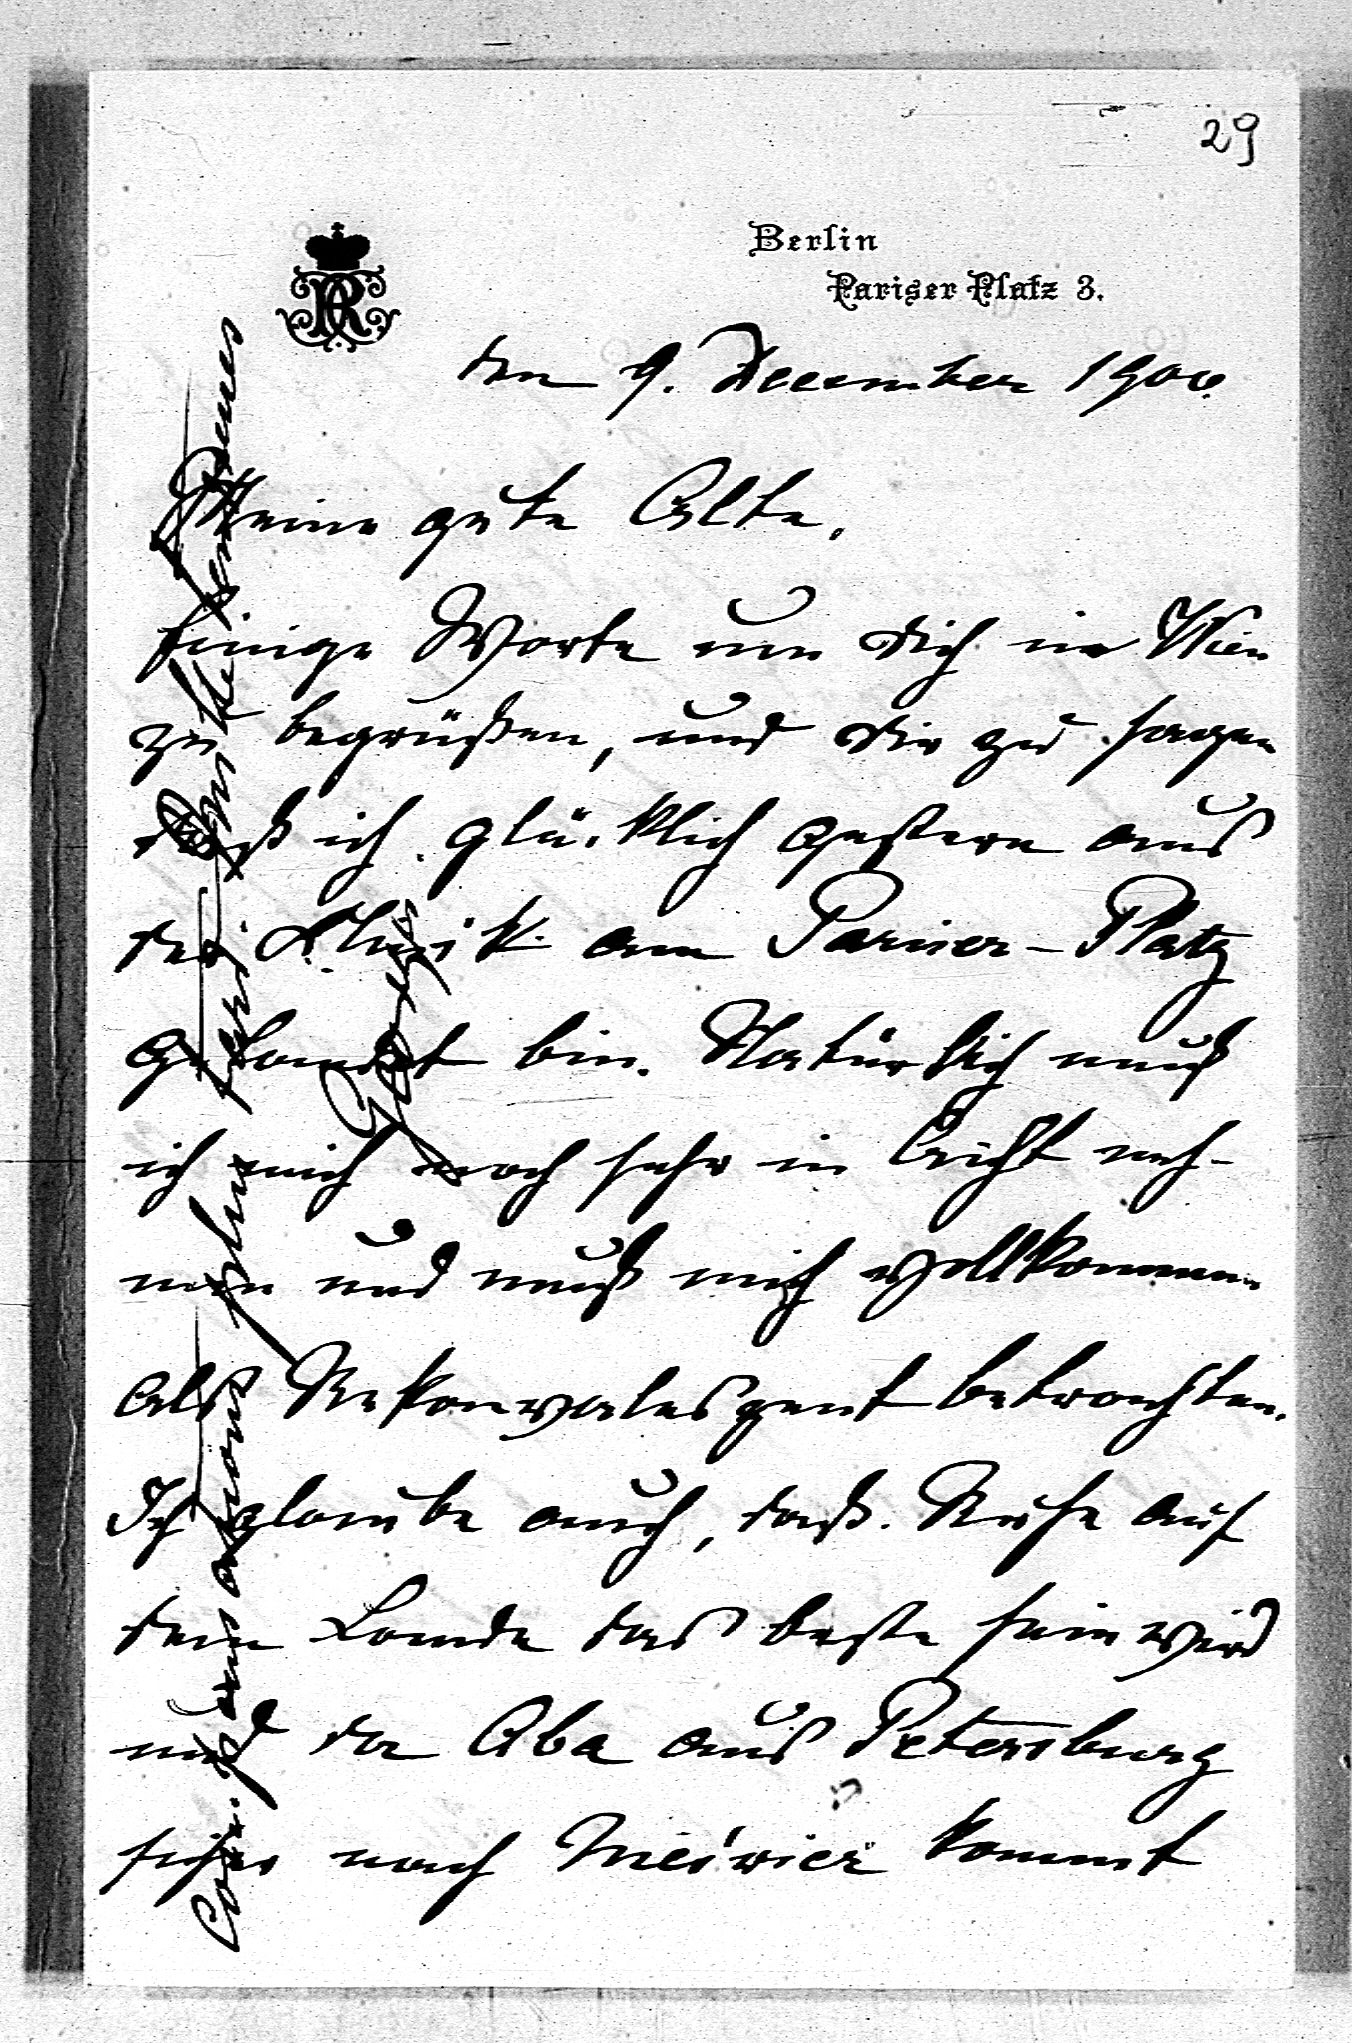 29
Berlin
Pariser Platz 3.
den 9. December 1900.
Meine gute Alte,
Einige Worte um dich in Wien
zu begrüßen, und dir zu sagen
daß ich glücklich gestern aus
der Klinik am Pariser-Platz
gelandet bin. Natürlich muß
ich mich noch sehr in Acht neh-
men und muß mich vollkommen
als Rekonvaleszent betrachten.
Ich glaube auch, daß Ruhe auf
dem Lande das beste sein wird
und da Aba aus Petersburg
sicher nach Nieświez kommt